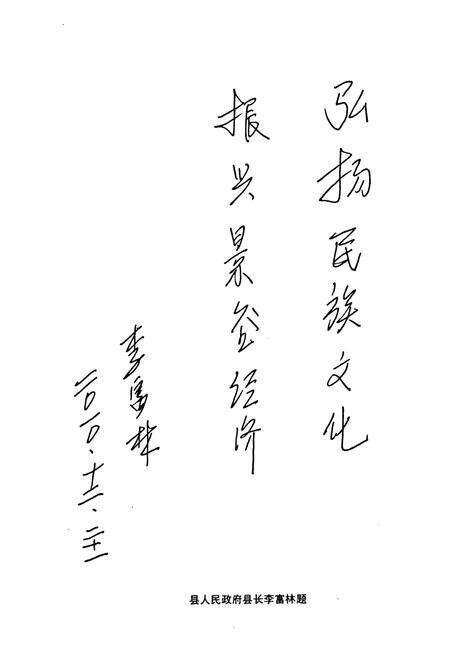 弘扬民族文化
振兴景谷经济
李富林
二〇〇〇、十二、二十一
县人民政府县长李富林题